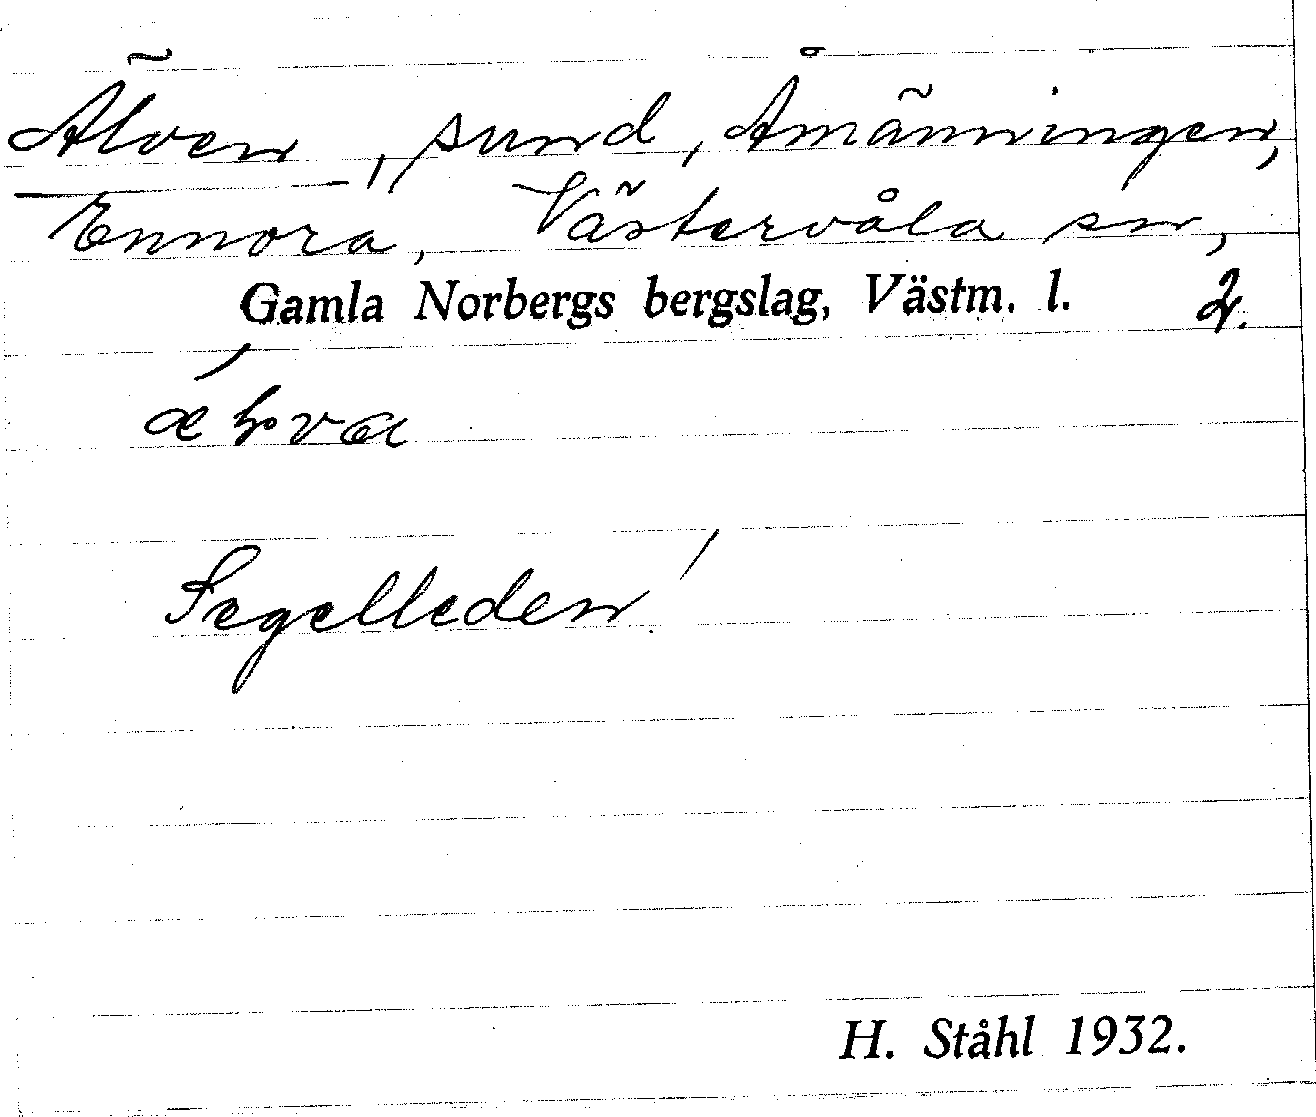 Älven, sund, Åmänningen,
Ennora, Västervåla sn,
Gamla Norbergs bergslag, Västm. l. 2.
Segelleden!
H. Ståhl 1932.